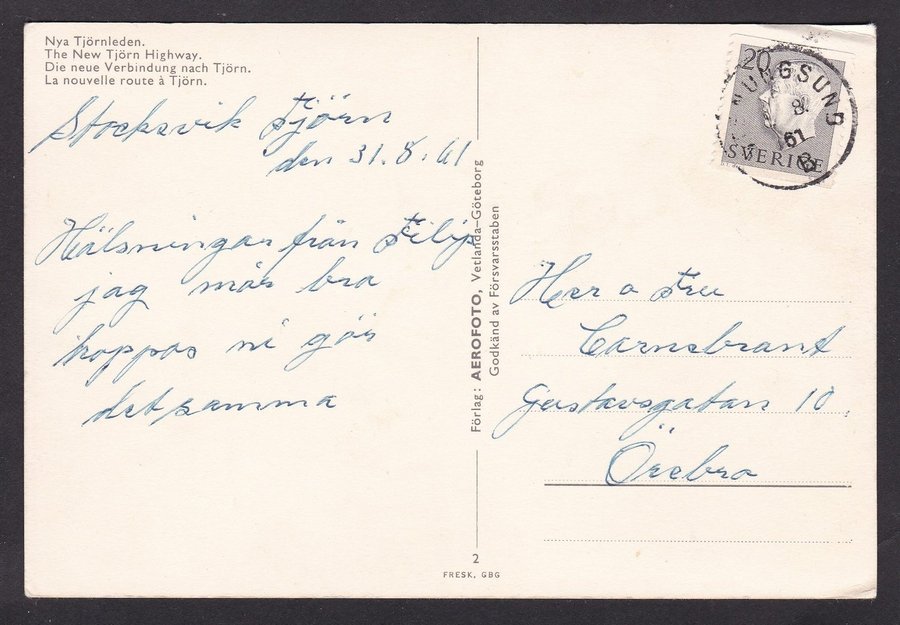 Nya Tjörnleden.
The New Tjörn Highway.
Die neue Verbindung nach Tjörn.
La nouvelle route à Tjörn.
Stocksvik Tjörn
den 31.8.61
Hälsningar från Filip
jag mår bra
hoppas ni gör
detsamma
Förlag: AEROFOTO, Vetlanda-Göteborg
Godkänd av Försvarsstaben
2
FRESK, GBG
20
SVERIGE
LJUNGSUND
8.
61
Herr o Fru
Carnebrant
Gustavsgatan 10.
Örebro